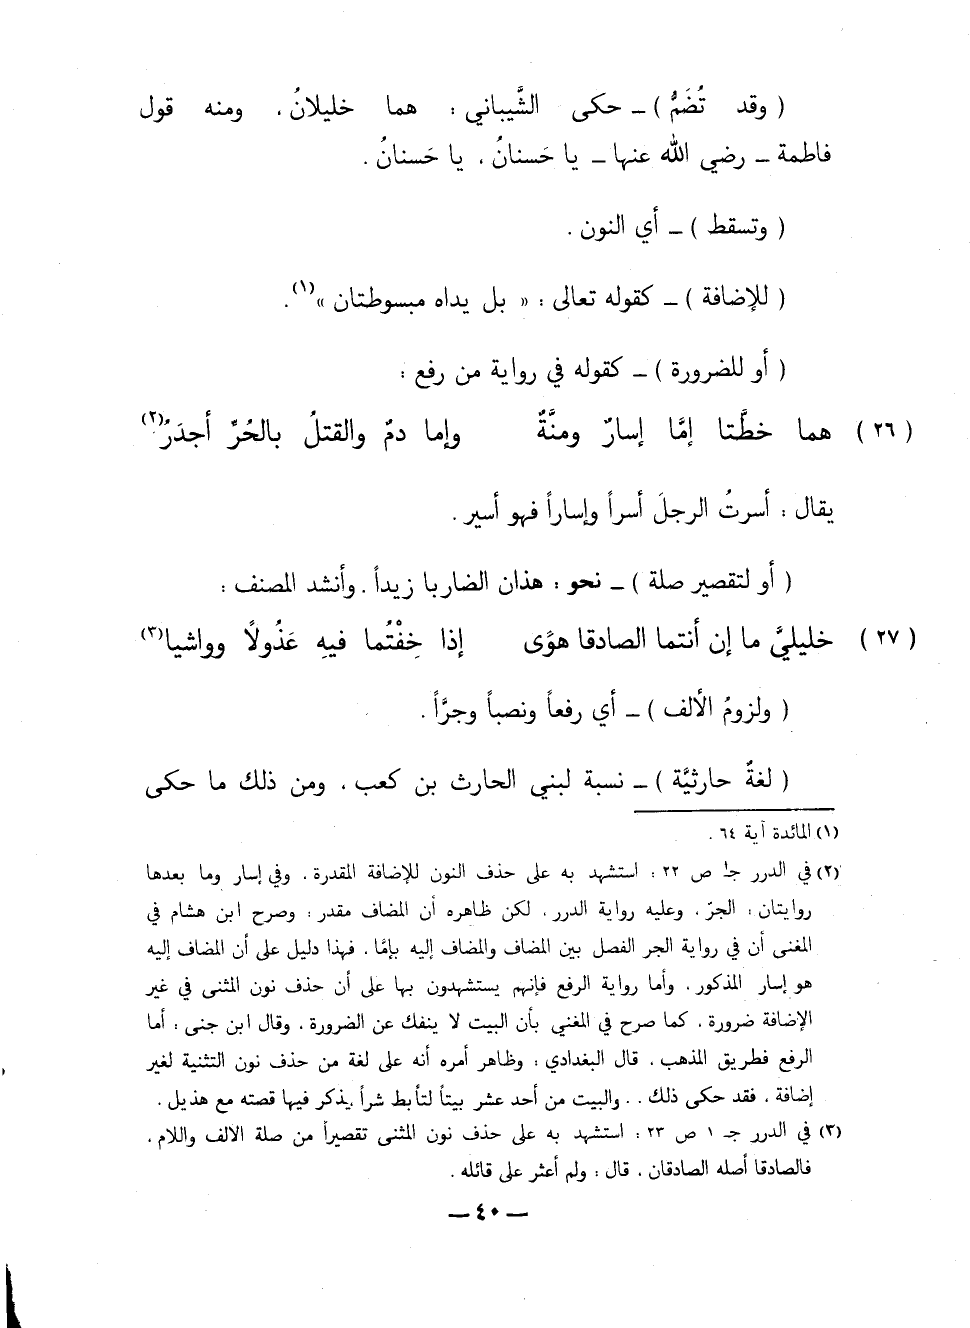 ( وقد تُضَمُّ ) ــ حكى الشَّيباني : هما خليلانُ ، ومنه قول
فاطمة ــ رضي الله عنها ــ يا حَسنانُ ، يا حَسنانُ .
( وتسقط ) ــ أي النون .
( للإضافة ) ــ كقوله تعالى : « بل يداه مبسوطتان »(١).
( أو للضرورة ) ــ كقوله في رواية من رفع :
( ٢٦ ) هما خطَّتا إمَّا إسارٌ ومنَّةٌ وإما دمٌ والقتلُ بالحُرِّ أجدَرُ(٢)
يقال : أسرتُ الرجلَ أسراً وإساراً فهو أسير .
( أو لتقصير صلة ) ــ نحو : هذان الضاربا زيداً . وأنشد المصنف :
( ٢٧ ) خليليَّ ما إن أنتما الصادقا هوًى إذا خِفْتُما فيهِ عَذُولًا وواشيا(٣)
( ولزومُ الألف ) ــ أي رفعاً ونصباً وجرَّاً .
( لغةٌ حارثيَّة ) ــ نسبة لبني الحارث بن كعب ، ومن ذلك ما حكى
(١) المائدة آية ٦٤ .
(٢) في الدرر جـ١ ص ٢٢ : استشهد به على حذف النون للإضافة المقدرة . وفي إسار وما بعدها
روايتان : الجرّ ، وعليه رواية الدرر ، لكن ظاهره أن المضاف مقدر : وصرح ابن هشام في
المغنى أن في رواية الجر الفصل بين المضاف والمضاف إليه بإمَّا ، فهذا دليل على أن المضاف إليه
هو إسار المذكور ، وأما رواية الرفع فإنهم يستشهدون بها على أن حذف نون المثنى في غير
الإضافة ضرورة ، كما صرح في المغني بأن البيت لا ينفك عن الضرورة ، وقال ابن جنى : أما
الرفع فطريق المذهب ، قال البغدادي : وظاهر أمره أنه على لغة من حذف نون التثنية لغير
إضافة ، فقد حكى ذلك . . والبيت من أحد عشر بيتاً لتأبط شراً يذكر فيها قصته مع هذيل .
(٣) في الدرر جـ ١ ص ٢٣ : استشهد به على حذف نون المثنى تقصيراً من صلة الالف واللام ،
فالصادقا أصله الصادقان ، قال : ولم أعثر على قائله .
ــ ٤٠ ــ